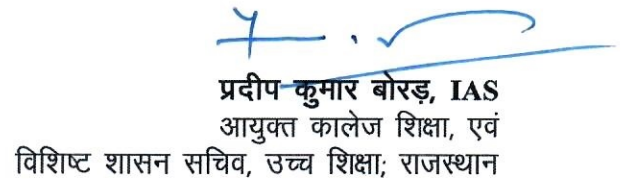 प्रदीप कुमार बोरड़, IAS
आयुक्त कालेज शिक्षा, एवं
विशिष्ट शासन सचिव, उच्च शिक्षा; राजस्थान